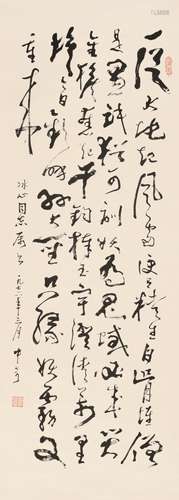 一从大地起风雷便有精生白骨堆僧
是愚氓犹可训妖为鬼蜮必成灾
金猴奋起千钧棒玉宇澄清万里
埃今日欢呼孙大圣只缘妖雾又
重来
冰心同志属书 一九七 年十二月